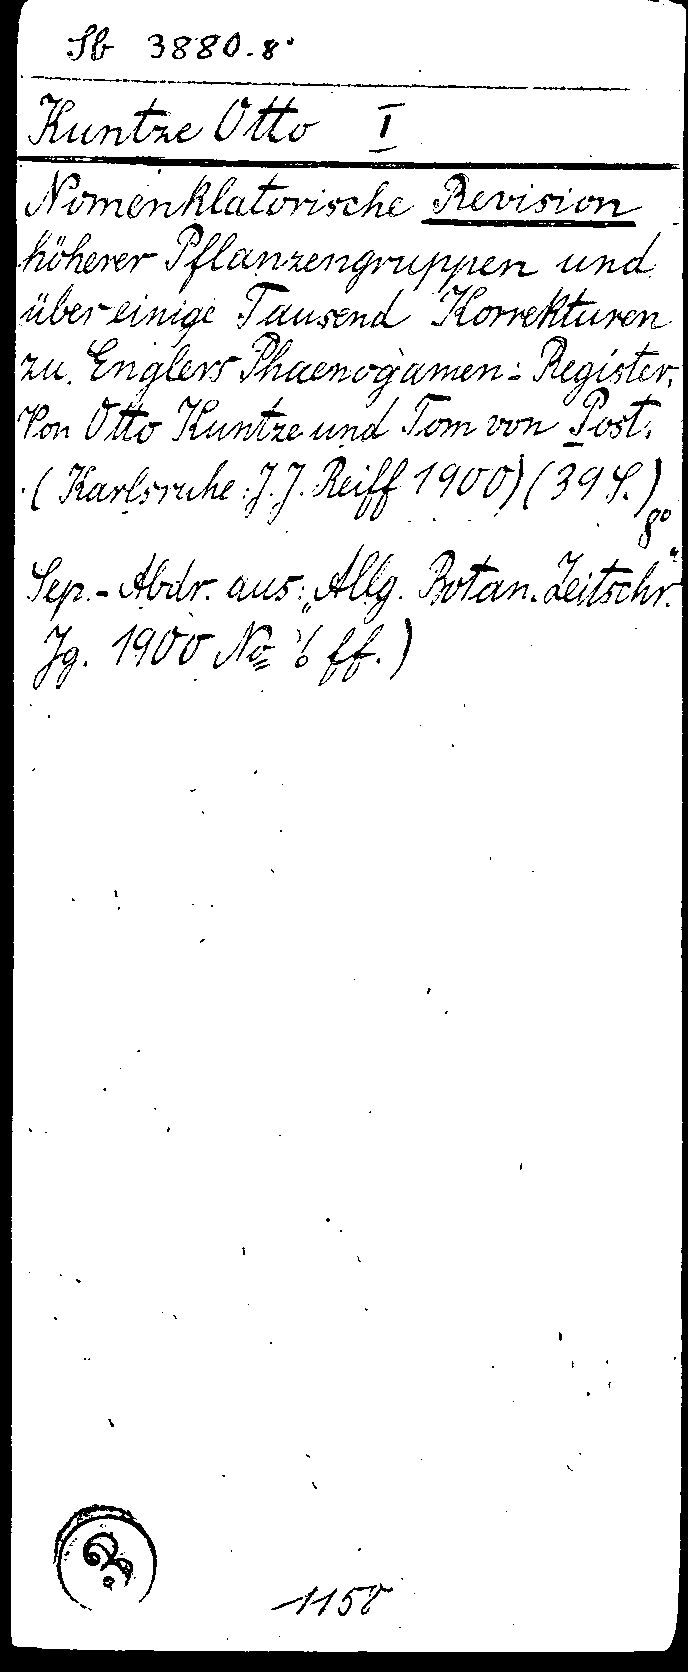 Sb 3880.8°
Kuntze Otto I
Nomenklatorische Revision
höherer Pflanzengruppen und
über einige Tausend Korrekturen
zu Englers Phaenogamen-Register.
Von Otto Kuntze und Tom von Post.
(Karlsruhe: J. J. Reiff 1900) (39 S.)
8°
Sep.-Abdr. aus: „Allg. Botan. Zeitschr."
Jg. 1900 No ff.)
1150